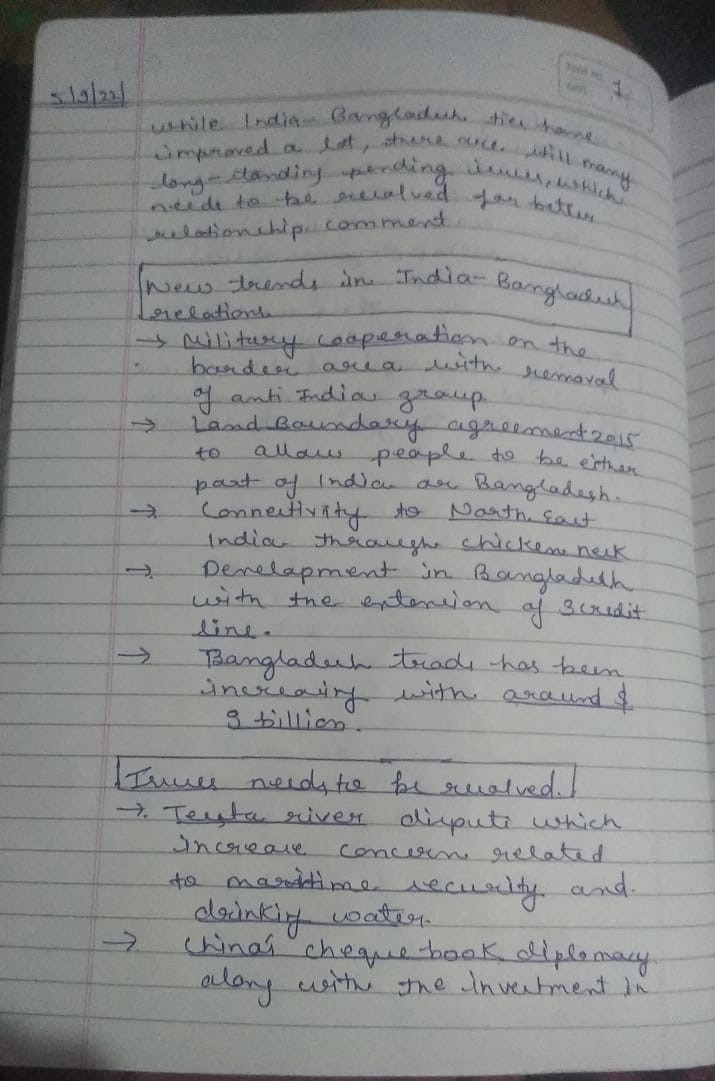 1
5/9/22/
while India-Bangladesh ties have
improved a lot, there are still many
long-standing pending issues, which
needs to be resolved for better
relationship. comment.
New trends in India-Bangladesh
relations.
→ Military cooperation on the
border area with removal
of anti India group.
→ Land Boundary agreement 2015
to allow people to be either
part of India or Bangladesh.
→ Connectivity to North East
India through chicken neck
→ Development in Bangladesh
with the extension of 3 credit
line.
→ Bangladesh trade has been
increasing with around $
9 billion.
Issues needs to be resolved.
→ Teesta river dispute which
increase concern related
to maritime security and
drinking water.
→ China's cheque book diplomacy
along with the investment in